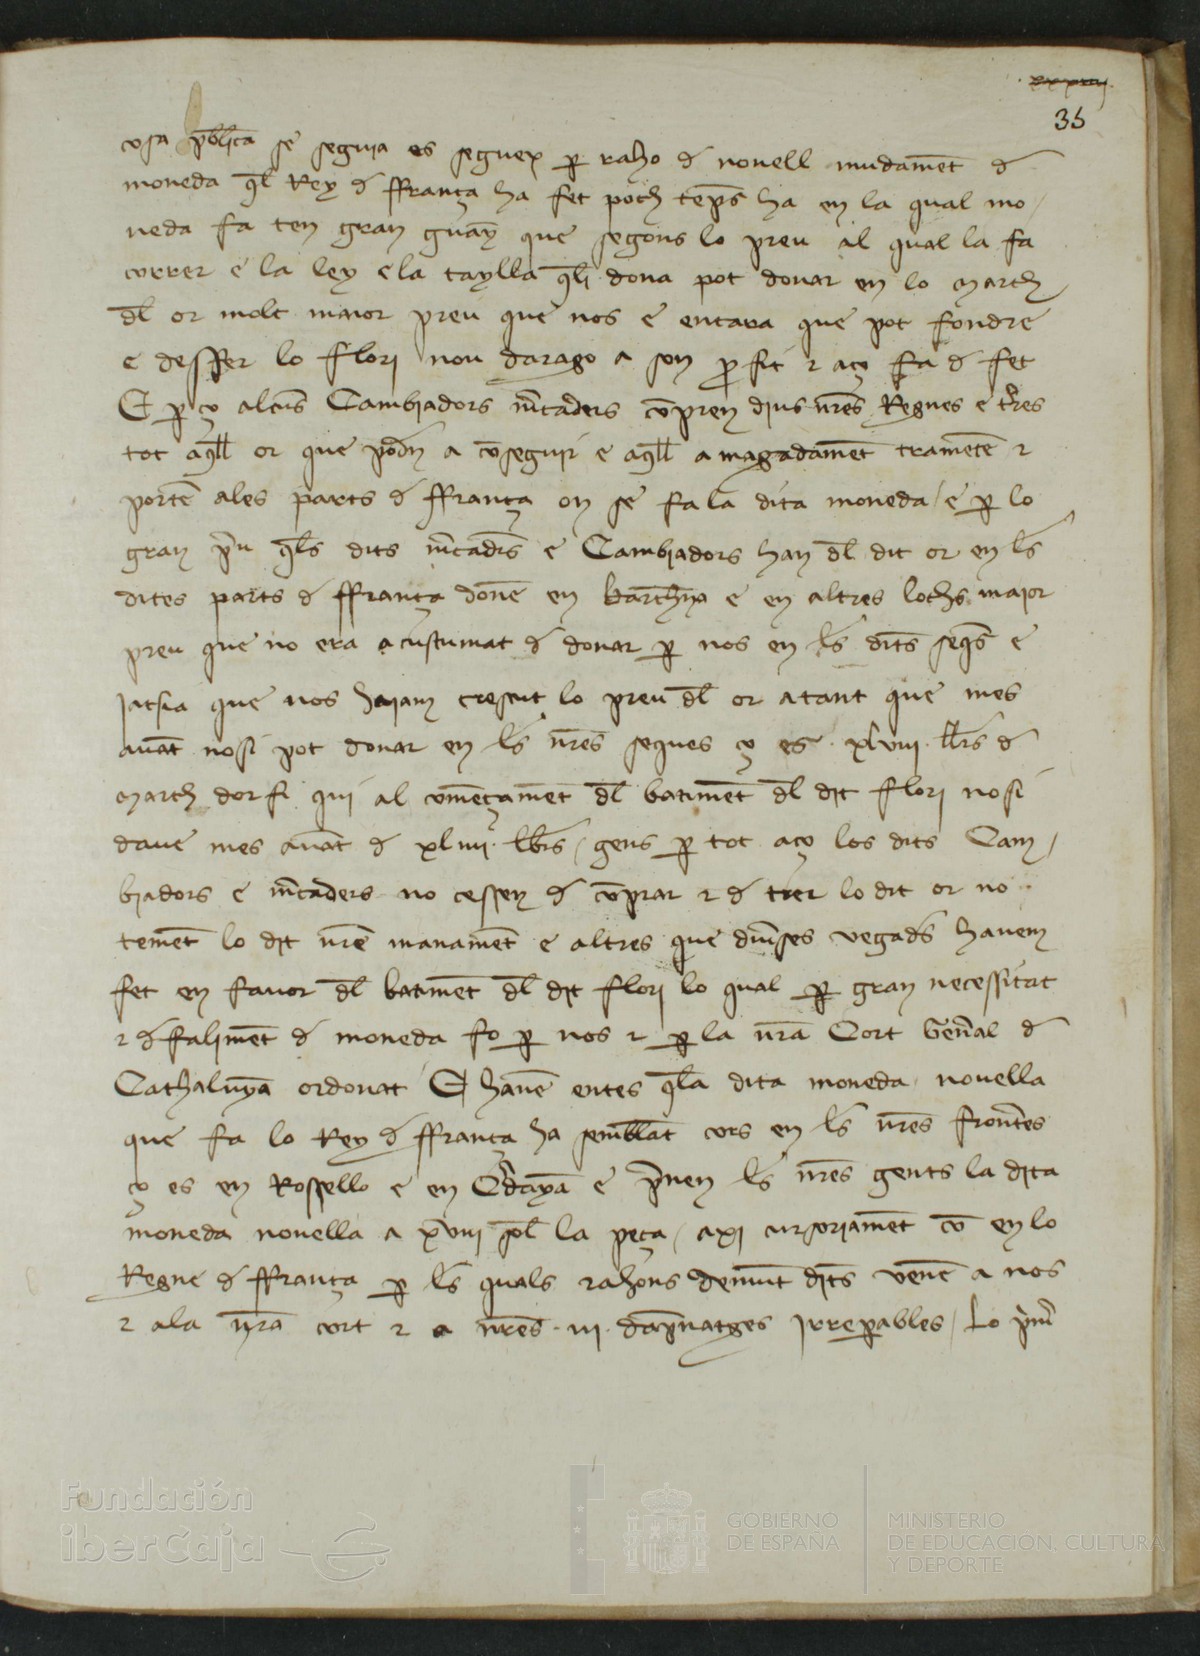 35
cosa publica se seguia es seguex per raho de nouell mudament de
moneda quel Rey de ffrança ha fet poch temps ha en la qual mo/
neda fa ten gran guany que segons lo preu al qual la fa
correr e la ley e la taylla quali dona pot donar en lo march
del or molt maior preu que nos e encara que pot fondre
e desffer lo flori nou darago a son profit r aço fa de fet
E per ço alcuns Cambiadors mercaders compren dius nostres Regnes e terres
tot aquell or que poden a conseguir e aquell amagadament trameten r
porten ales parts de ffrança on se fa la dita moneda / e per lo
gran preu quels dits mercaders e Cambiadors han del dit or en les
dites parts de ffrança donen en barchna e en altres lochs maior
preu que no era acustumat de donar per nos en les dits seques e
iatsia que nos haiam crescut lo preu del or atant que mes
auant nosi pot donar en les nostres seques ço es xlviii llrs de
march dor fi qui al començament del batiment del dit flori nosi
daue mes auant de xliiii lbrs / gens per tot aço los dits Cam/
biadors e mercaders no cessen de comprar r de trer lo dit or no
tement lo dit nostre manament e altres que diuerses vegades hauem
fet en fauor del batiment del dit flori lo qual per gran necessitat
r defaliment de moneda fo per nos r per la nostra Cort General de
Cathalunya ordonat E hauem entes quela dita moneda nouella
que fa lo Rey de ffrança ha semblat cors en les nostres fronteres
ço es en Rossello e en Cerdanya e prenen les nostres gents la dita
moneda nouella a xviii sol la peça / axi cursoriament com en lo
Regne de ffrança per les quals rahons demunt dits venen a nos
r ala nostra cort r a nostres iii dampnatges irreperables / Lo primer
Fundación
iberCaja
GOBIERNO
DE ESPAÑA
MINISTERIO
DE EDUCACIÓN, CULTURA
Y DEPORTE